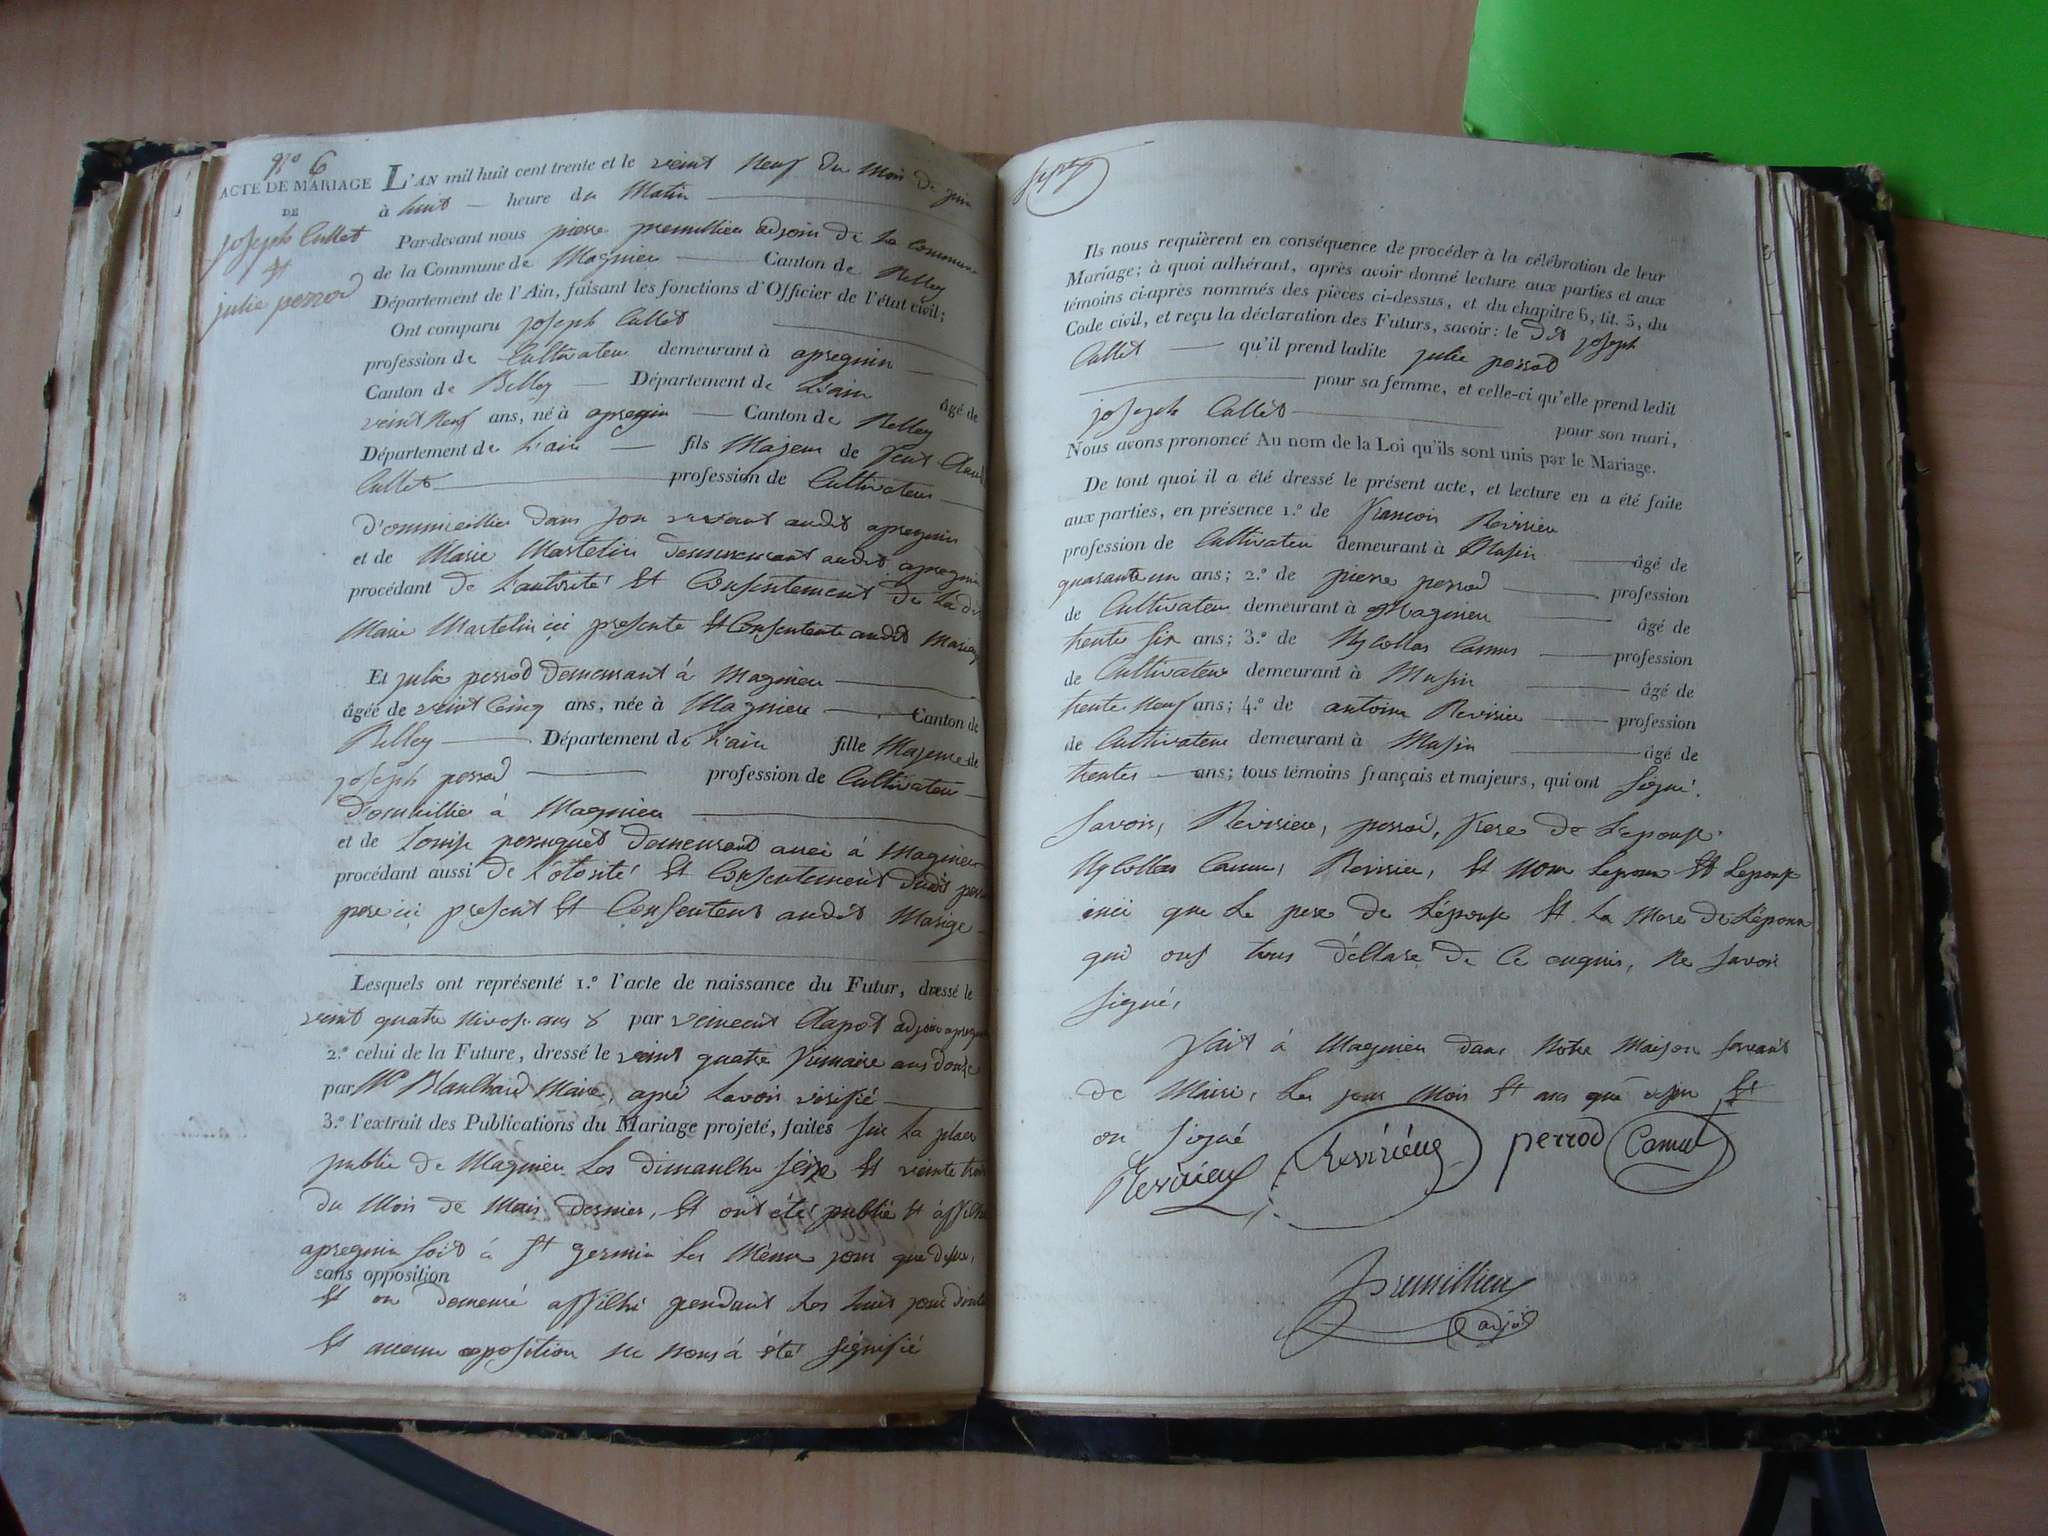 nº 6
ACTE DE MARIAGE
DE
joseph Cullet
et
julie perrod
L'AN mil huit cent trente et le veint neuf du mois de juin
à huit heure du Matin
Par-devant nous pierre premillieu adjoin de la commune
de la Commune de Magnieu Canton de Belley
Département de l'Ain, faisant les fonctions d'Officier de l'état civil;
Ont comparu joseph Cullet
profession de Cultivateur demeurant à apregnin
Canton de Belley Département de L'ain âgé de
veint neuf ans, né à apregnin Canton de Belley
Département de L'ain fils Majeur de feut Claude
Cullet profession de Cultivateur
d'ommicillier dans son vivant audit apregnin
et de Marie Martelin demeurant audit apregnin
procédant de L'autorité et Consentement de la dt
Marie Martelin ici presente et Consentente audit Mariage
Et julie perrod demeurant à Magnieu
âgée de veint Cinq ans, née à Magnieu Canton de
Belley Département de L'ain fille Majeure de
joseph perrod profession de Cultivateur
D'omicillié à Magnieu
et de Louise peruquet demeurant à Magnieu
procédant aussi de L'otorité et Consentement dudit perrod
pere ici present et Consentent audit Marige
Lesquels ont représenté 1.º l'acte de naissance du Futur, dressé le
veint quatre nivose ans 8 par veincent Clapot adjoin apregnin
2.º celui de la Future, dressé le veint quatre frimaire ans douze
par Mr Blanchard Maire, apré Lavoir vérifié
3.º l'extrait des Publications du Mariage projeté, faites sur La place
public de Magnieu Les dimanche seize et veinte trois
du Mois de Mais dernier, et ont été publié et affiché
apregnin soit à st germin Les Même jour que desus,
sans opposition
et on demeuré affiché pendant Les huit jour
et aucun opposition ne nous a été signifié
Ils nous requièrent en conséquence de procéder à la célébration de leur
Mariage; à quoi adhérant, après avoir donné lecture aux parties et aux
témoins ci-après nommés des pièces ci-dessus, et du chapitre 6, tit. 5, du
Code civil, et reçu la déclaration des Futurs, savoir: le dit joseph
Cullet qu'il prend ladite julie perrod
pour sa femme, et celle-ci qu'elle prend ledit
joseph Cullet pour son mari,
Nous avons prononcé Au nom de la Loi qu'ils sont unis par le Mariage.
De tout quoi il a été dressé le présent acte, et lecture en a été faite
aux parties, en présence 1.º de francois Revirieu
profession de Cultivateur demeurant à Musin âgé de
quarante un ans; 2.º de pierre perrod profession
de Cultivateur demeurant à Magnieu âgé de
trente six ans; 3.º de Nycollas Camus profession
de Cultivateur demeurant à Musin âgé de
trente neuf ans; 4.º de antoine Revirieu profession
de Cultivateur demeurant à Musin âgé de
trente ans; tous témoins français et majeurs, qui ont signé.
Savoir, Revirieu, perrod, frere de Lepouse
Nycollas Camus, Revirieu, et non Lepoux et Lepouse
que Le pere de L'épouse et La Mere de L'époux
qui ont tous déllaré de Ce enquis, ne savoir
signé,
fait à Magnieu dans notre Maison servant
de Mairi, Les jour mois et ans que desu et
on signé
Revirieux Revirieus perrod Camus
premillieu
adjoi